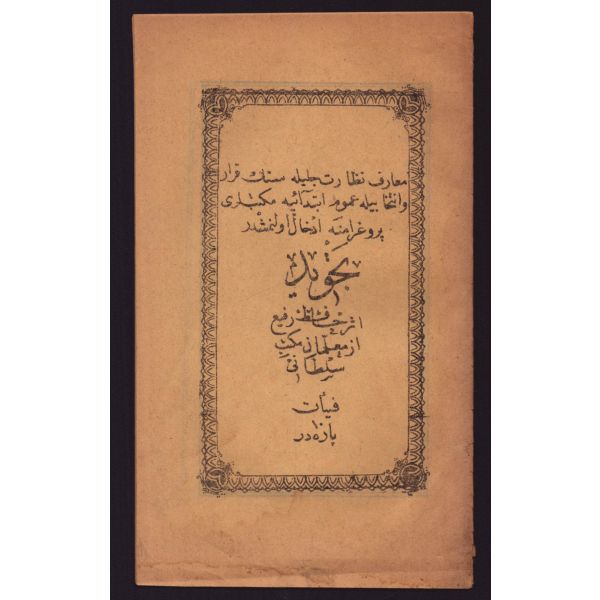 معارف نظارت جليله سنك قرار
وانتخابيله عموم ابتدائيه مكتبلرى
پروغرامنه ادخال اولنمشدر
تجويد
اثر حافظ رفيع
از معلمان مكتب
سلطانى
فيأت
١٠
پاره در